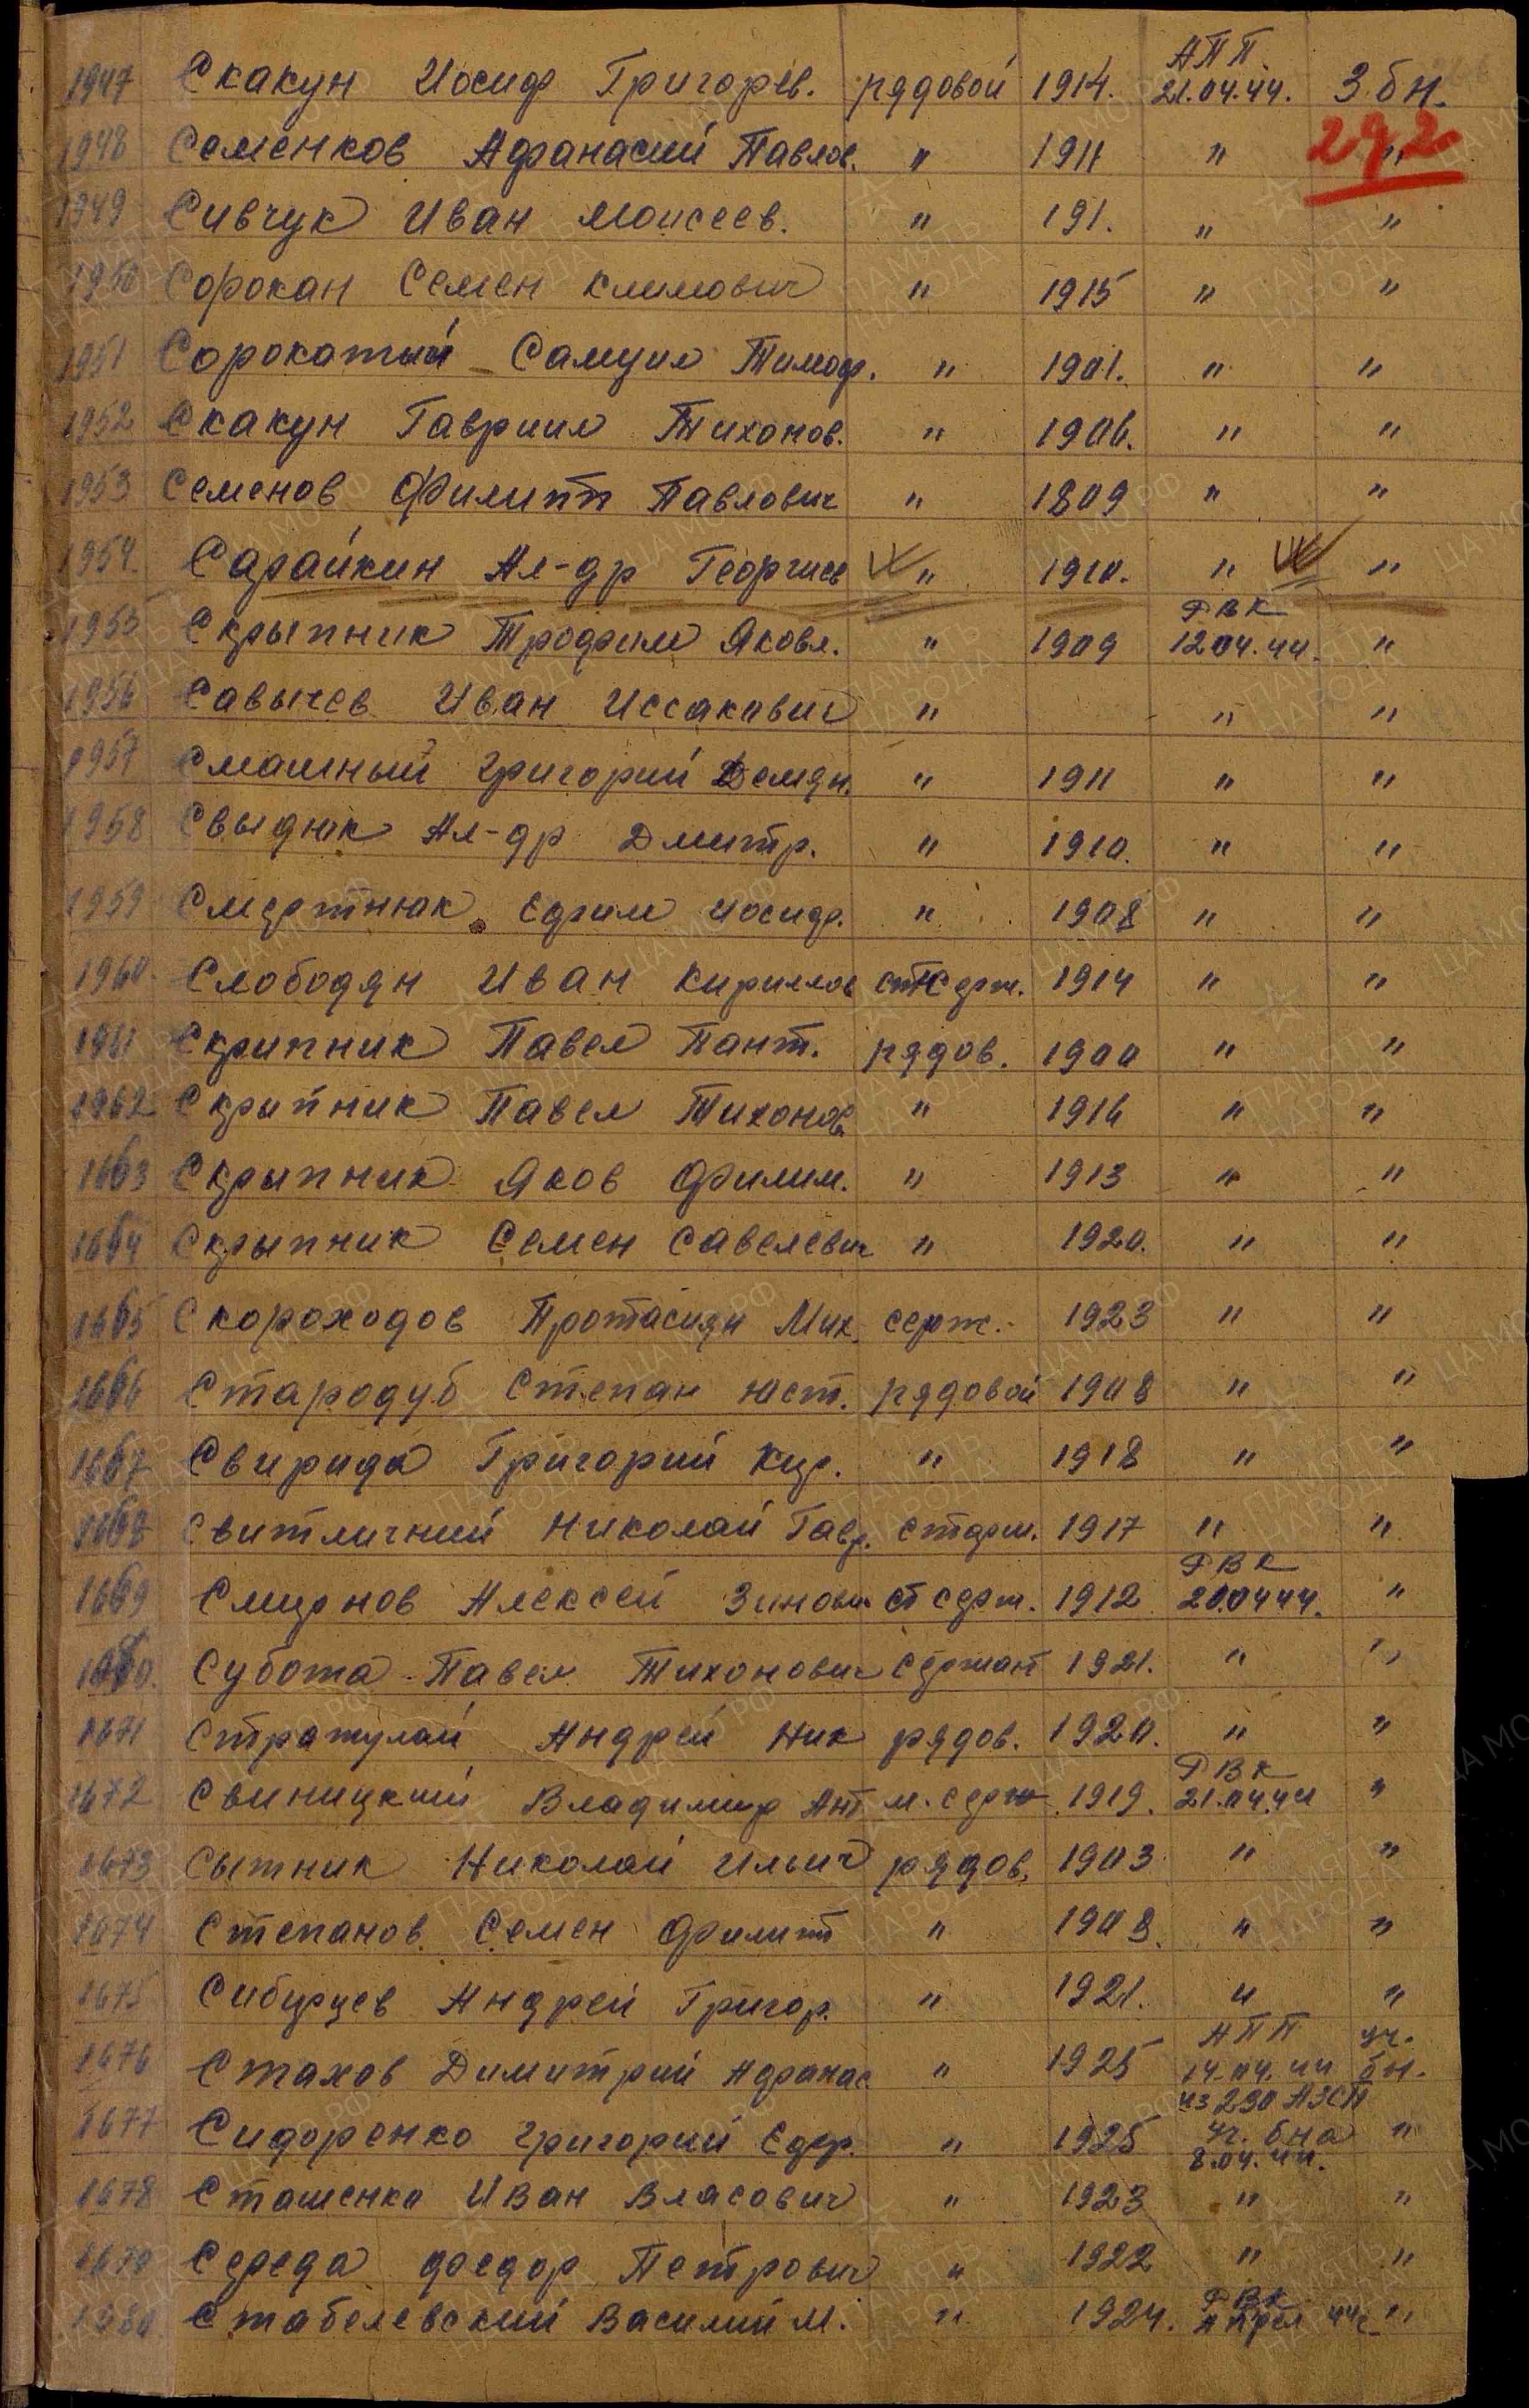 1947 Скакун Иосиф Григорев. рядовой 1914. АПП 21.04.44. 3 бн.
1948 Семенков Афанасий Павлов. " 1911 " "
292
1949 Сивчук Иван Моисеев. " 191. " "
1950 Сорокан Семен Климович " 1915 " "
1951 Сорокатый Самуил Тимоф. " 1901. " "
1952 Скакун Гавриил Тихонов. " 1906. " "
1953 Семенов Филипп Павлович " 1809 " "
1954. Сарайкин Ал-др Георгиев " 1910. " "
1955 Скрыпник Трофим Яковл. " 1909 РВК 12 04.44. "
1956 Савычев Иван Иссакович " " "
1957 Смашный Григорий Демян. " 1911 " "
1958 Свыднюк Ал-др Дмитр. " 1910. " "
1959 Смертнюк Ефим Иосиф. " 1908 " "
1960. Слободян Иван Кириллов ст серж. 1914 " "
1961 Скрипник Павел Пант. рядов. 1900 " "
1962 Скрыпник Павел Тихонов. " 1916 " "
1663 Скрыпник Яков Филим. " 1913 " "
1664 Скрыпник Семен Савелевич " 1920. " "
1665 Скороходов Протасиян Мих. серж. 1923 " "
1666 Стародуб Степан Юст. рядовой 1908 " "
1667 Свирида Григорий Кир. " 1918 " "
1668 Свитличний Николай Гавр. старш. 1917 " "
1669 Смирнов Алексей Зинович ст серж. 1912 РВК 20.04 44. "
Субота Павел Тихонович сержант 1921. " "
1671 Стратулай Андрей Ник рядов. 1920. " "
1672 Свиницкий Владимир Ант м. серж 1919. РВК 21.04.44 "
1673 Сытник Николай Ильич рядов. 1903 " "
1674 Степанов Семен Филипп " 1908. " "
1675 Сибирцев Андрей Григор. " 1921. " "
1676 Стахов Димитрий Афанас. " 1925 АПП 14.04.44 уч. бн.
1677 Сидоренко Григорий Едор. " 1925 из 230 АЗСП уч. бна 8.04.44. "
1678 Сташенко Иван Власович " 1923 " "
1679 Середа Федор Петрович " 1922 " "
1680 Стабелевский Василий М. " 1924. РВК Апрел 44г "
ЦА МО РФ
ПАМЯТЬ НАРОДА